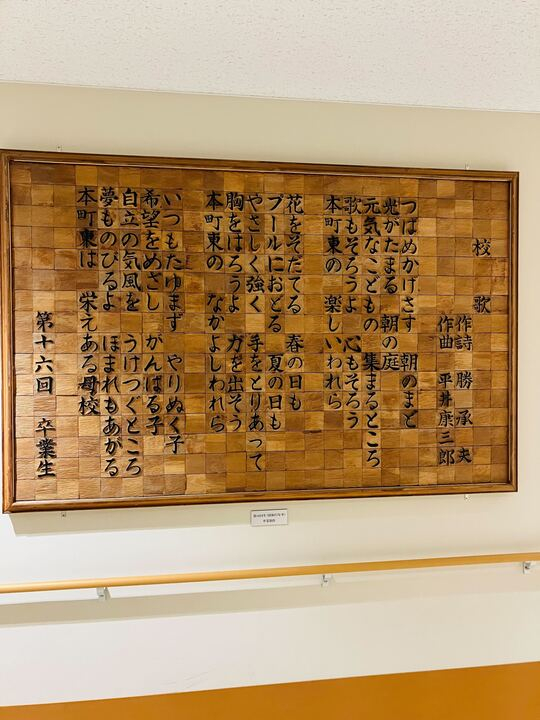 校歌
作詩 勝承夫
作曲 平井康三郎
つばめかげさす 朝のまど
光がたまる 朝の庭
元気なこどもの 集まるところ
歌もそろうよ 心もそろう
本町東の 楽しいわれら
花をそだてる 春の日も
プールにおどる 夏の日も
やさしく強く 手をとりあって
胸をはろうよ 力を出そう
本町東の なかよしわれら
いつもたゆまず やりぬく子
希望をめざし がんばる子
自立の気風を うけつぐところ
夢ものびるよ ほまれもあがる
本町東は 栄えある母校
第十六回 卒業生